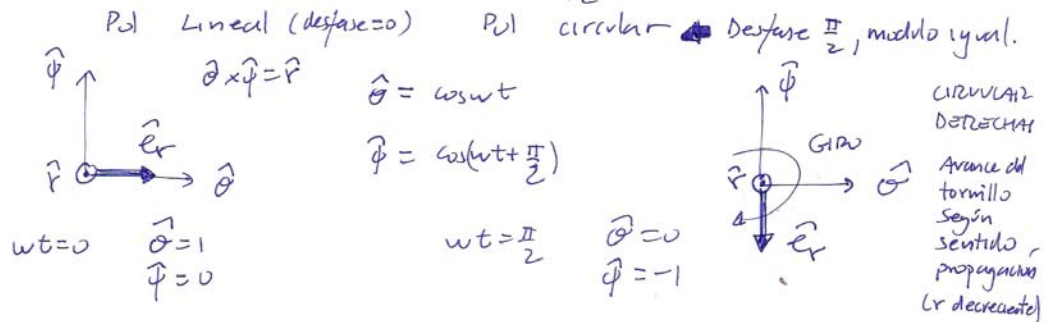 Pol Lineal (desfase=0) Pol circular Desfase π/2, modulo igual.
φ̂ θ̂×φ̂=r̂
θ̂ = cos wt
φ̂ = cos(wt+π/2)
êr
r̂ θ̂
wt=0 θ̂=1
φ̂=0
wt=π/2 θ̂=0
φ̂=-1
φ̂
GIRO
r̂ θ̂
êr
CIRCULAR
DERECHA
Avance del
tornillo
según
sentido
propagación
(r decreciente)